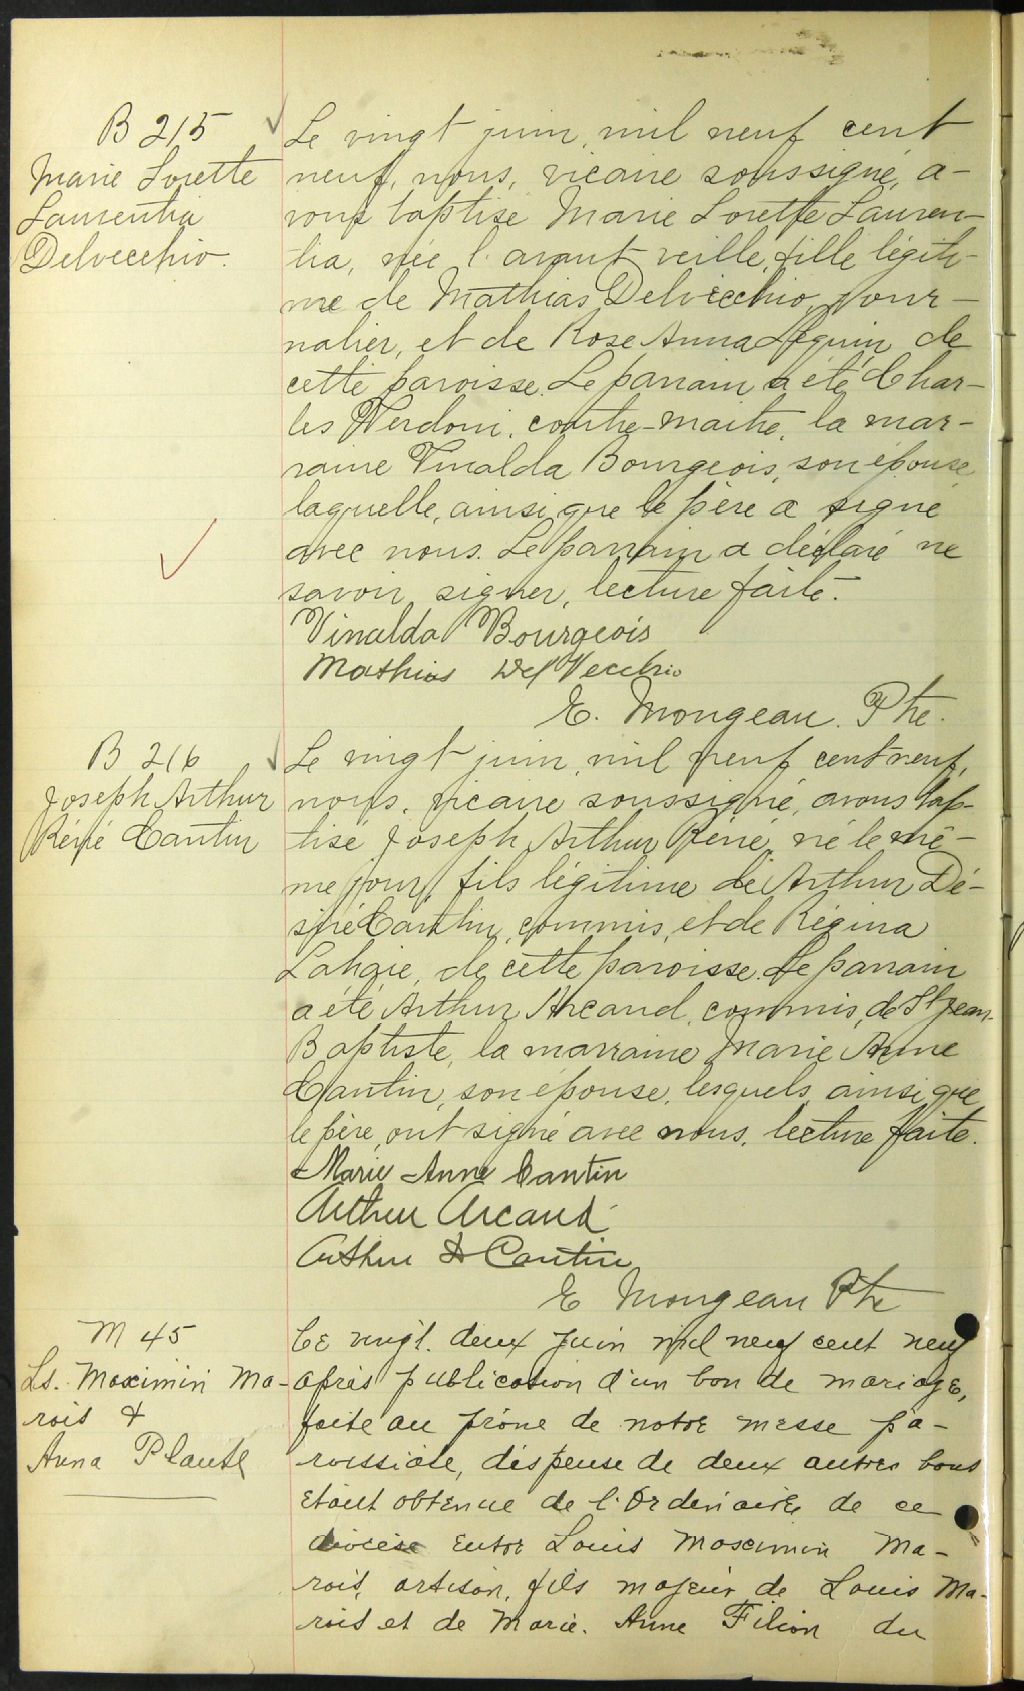 B 215
Marie Lorette
Laurentia
Delvecchio.
Le vingt juin, mil neuf cent
neuf, nous, vicaire soussigné, a-
vons baptisé Marie Lorette Lauren-
tia, née l'avant veille, fille légiti-
me de Mathias Delvecchio, jour-
nalier, et de Rose Anna Séguin, de
cette paroisse. Le parrain a été Char-
les Verdoni, contre-maitre, la mar-
raine Vinalda Bourgeois, son épouse
laquelle, ainsi que le père a signé
avec nous. Le parrain a déclaré ne
savoir signer, lecture faite.
Vinalda Bourgeois
Mathias Del Vecchio
E. Mongeau. Ptre.
B 216
Joseph Arthur
Réné Cantin
Le vingt juin, mil neuf cent neuf,
nous, vicaire soussigné, avons bap-
tisé Joseph Arthur Réné, né le mê-
me jour, fils légitime de Arthur Dé-
siré Cantin, commis, et de Régina
Lahaie, de cette paroisse. Le parrain
a été Arthur Arcand, commis, de St Jean-
Baptiste, la marraine Marie Anne
Cantin, son épouse, lesquels, ainsi que
le père, ont signé avec nous, lecture faite.
Marie Anne Cantin
Arthur Arcand
Arthur D Cantin
E Mongeau Ptre
M 45
Ls. Maximin Ma-
rois &
Anna Plante
Le vingt. deux juin mil neuf cent neuf
après publication d'un ban de mariage,
faite au prône de notre messe pa-
roissiale, dispense de deux autres bans
étant obtenue de l'Ordinaire de ce
diocèse entre Louis Maximin Ma-
rois, artisan, fils majeur de Louis Ma-
rois et de Marie. Anne Filion du